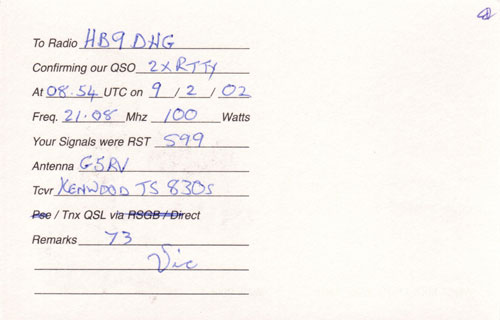 To Radio HB9DHG
Confirming our QSO 2XRTTY
At 08.54 UTC on 9 / 2 / 02
Freq. 21.08 Mhz 100 Watts
Your Signals were RST 599
Antenna G5RV
Tcvr KENWOOD TS 830s
Pse / Tnx QSL via RSGB / Direct
Remarks 73
Vic